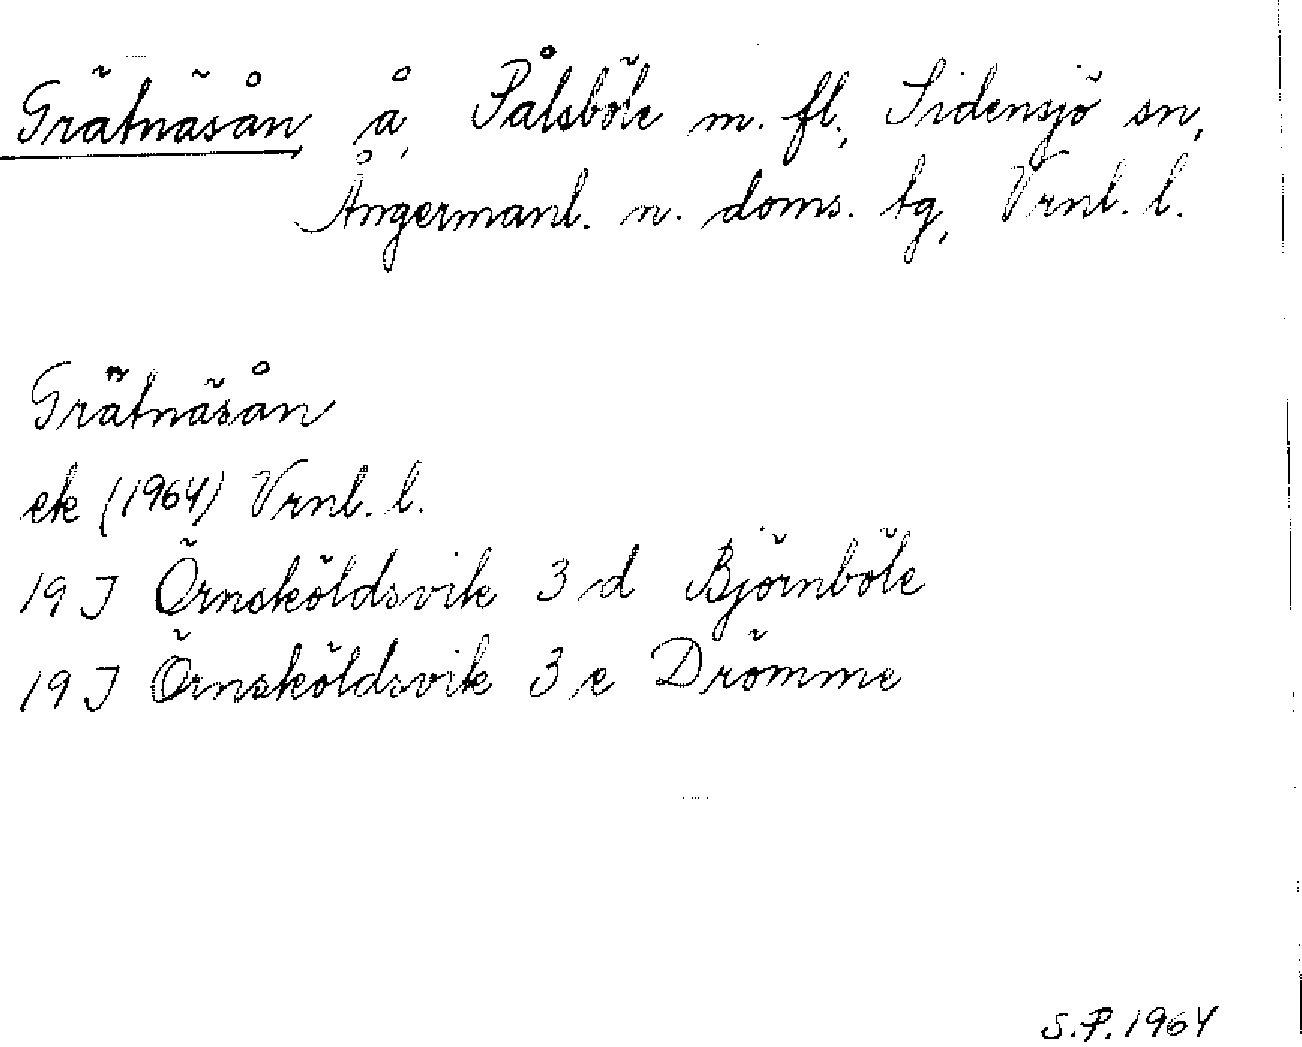 Grätnäsån å, Pålsböle m. fl., Sidensjö sn,
Ångermanl. n. doms. tg, Vrnl. l.
Grätnäsån
ek (1964) Vrnl. l.
19 J Örnsköldsvik 3 d Björnböle
19 J Örnsköldsvik 3 e Drömme
S.P. 1964